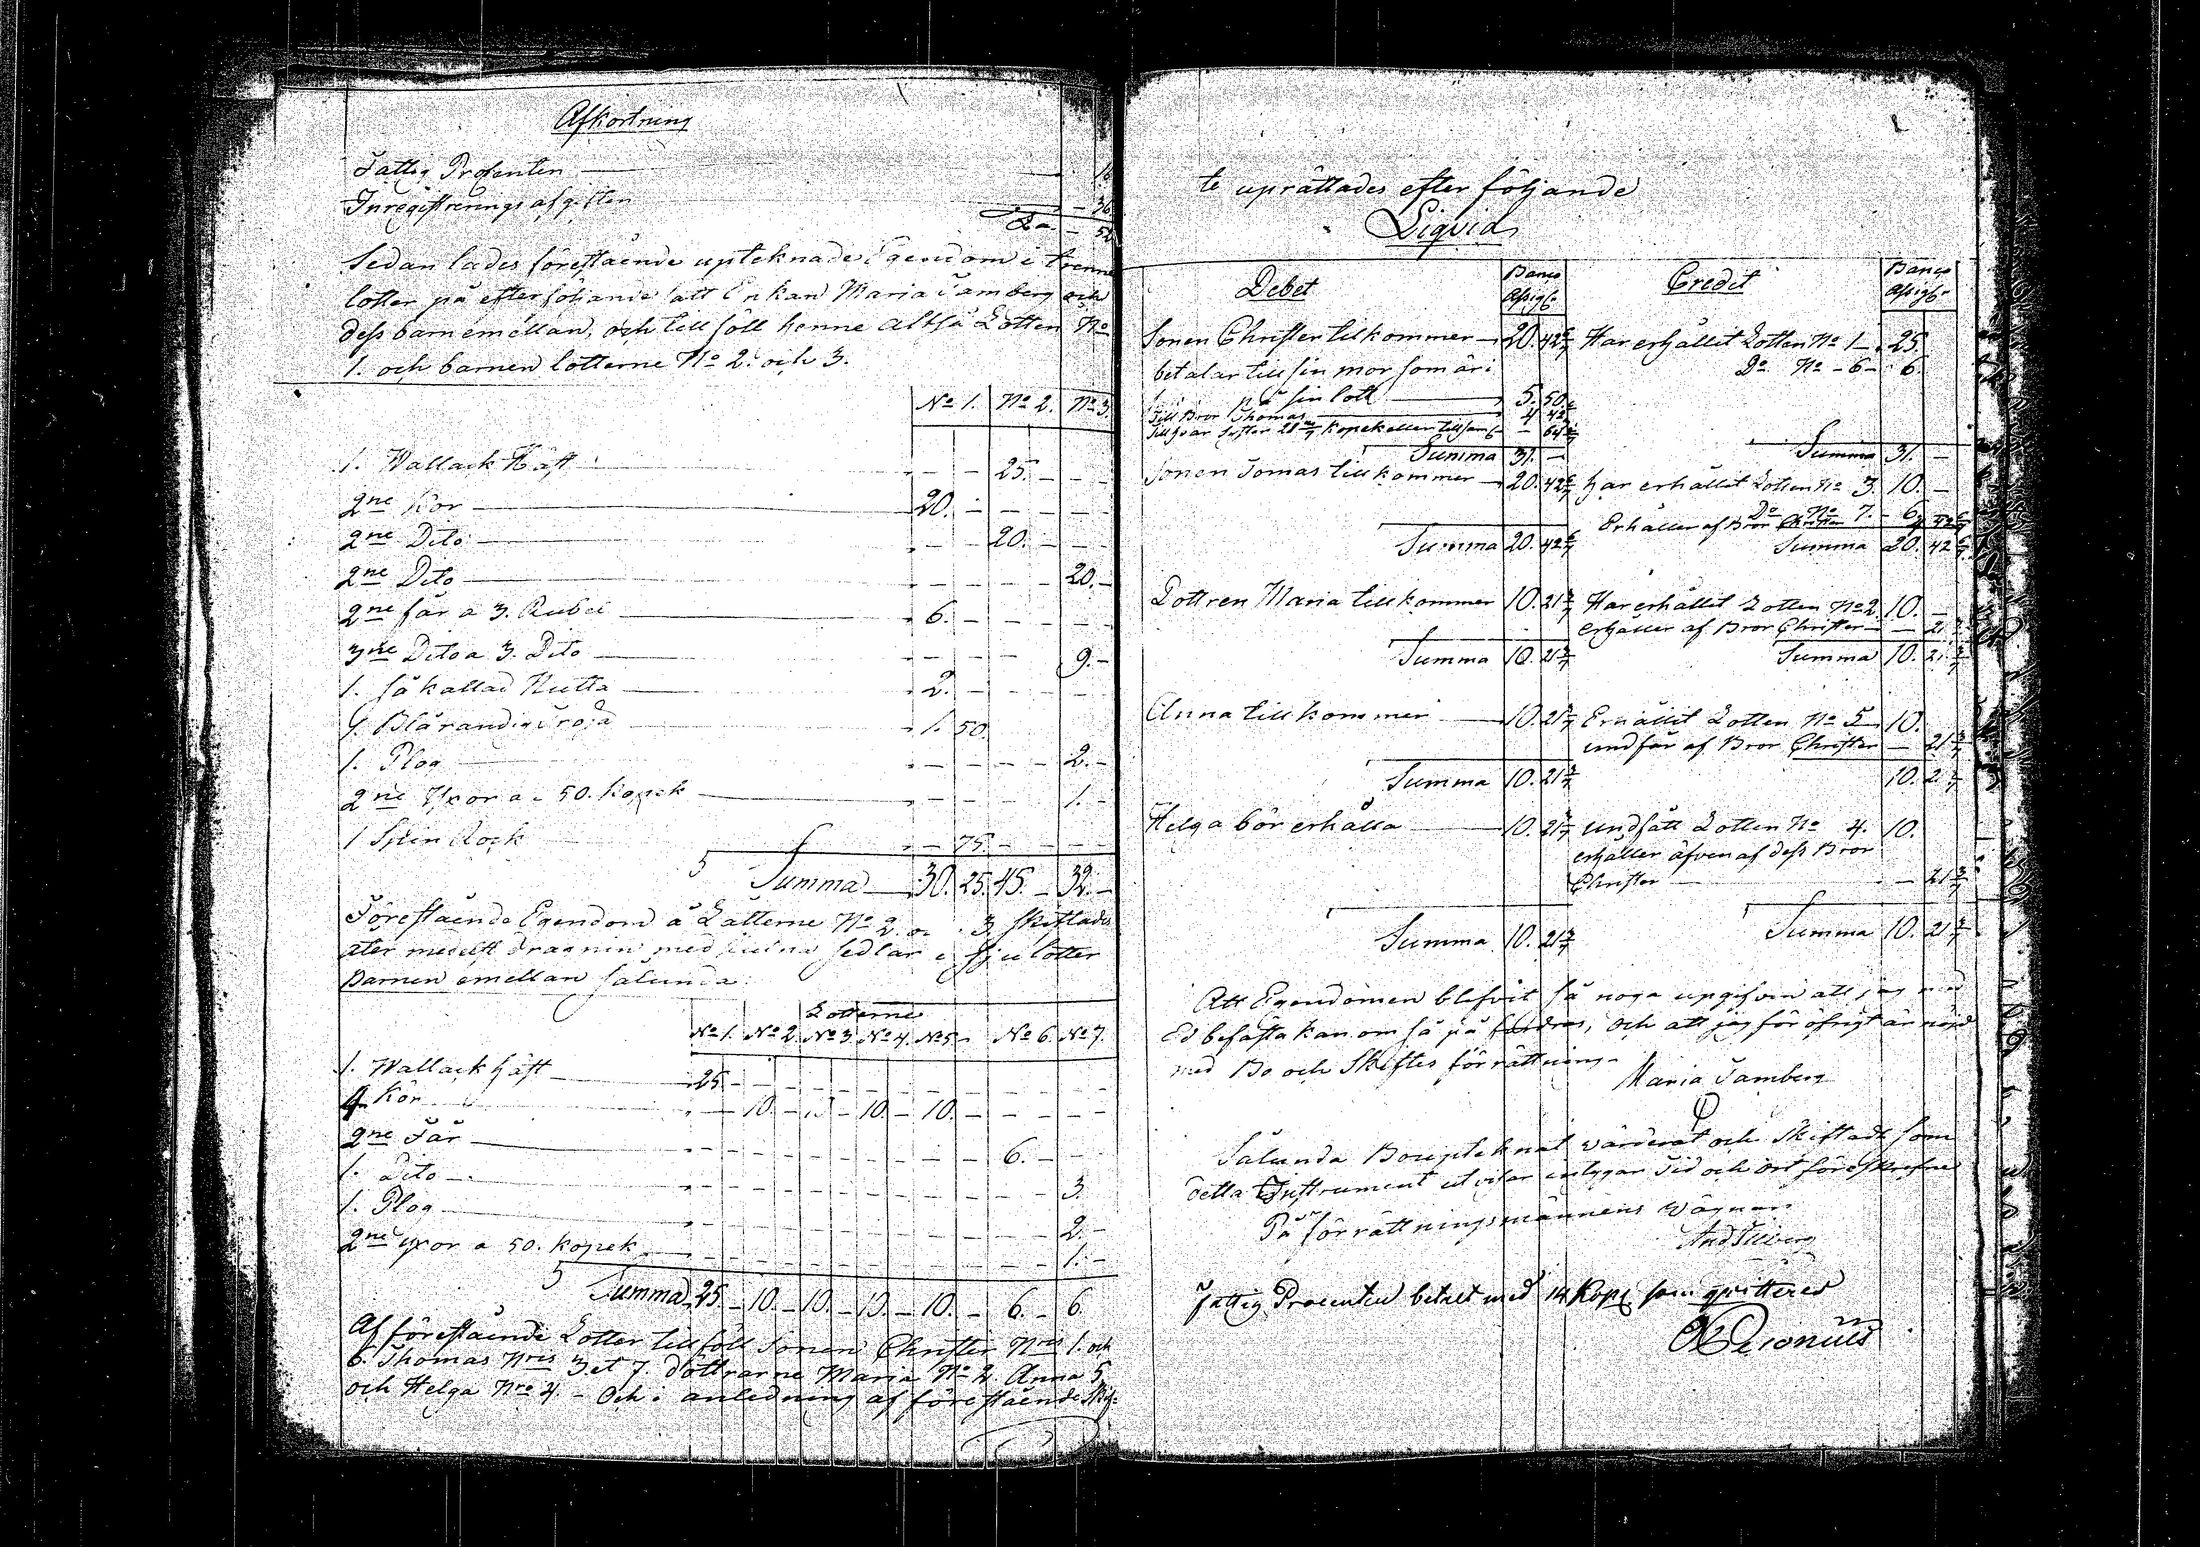 Afkortning
Fattig Procenten — 16
Inregistrerings afgiften — 36
Sa — 52
Sedan lades förestående upteknade Egendom i trenne
lotter på efterföljande sätt Enkan Maria Tamberg och
dess barn emellan, och tillföll henne altså Lotten No
1. och barnen lotterne No 2. och 3.
No 1. No 2. No 3.
1. Wallack Häst — 25. —
2ne Kor — 20. —
2ne Dito — 20. —
2ne Dito — 20. —
2ne får a 3. Rubel — 6. —
3ne Dito a 3. Dito — 9. —
1. så kallad Hutta — 2. —
1. Blårandig Tröja — 1. 50.
1. Plog — 2. —
2ne Yxor a 50. kopek — 1. —
1 Spin Rock — 75.
Summa 30. 25. 45. — 32. —
Förestående Egendom å Lotterne No 2. 3. skiftades
åter medelst dragning med sedlar i sju lotter
Barnen emellan sålunda:
Lotterne
No 1. No 2. No 3. No 4. No 5. No 6. No 7.
1. Wallack häst — 25 —
4 Kor — 10. — 10 — 10. — 10. —
2ne Får — 6. —
1. Dito — 3.
1. Plog — 2. —
2ne yxor a 50. kopek — 1. —
Summa 25. — 10. — 10. — 10. — 10. — 6. — 6.
Af förestående Lotter tillföll Sonen Christer Nris 1. och
6. Thomas Nris 3 et 7. döttrarne Maria No 2. Anna 5
och Helga Nro 4. — Och i anledning af föreståen de Skif-
te uprättades efter följande
Liqvid
Debet Banco Assigr Credit Banco Assigr
Sonen Christer tillkommer — 20. 42 6/7 Har erhållit Lotten No 1 — 25.
betalar till sin mor som är i Do No — 6 — 6.
på sin lott — 5. 50
Till Bror Thomas — 4 42 6/7
Till hvar Syster 21 3/7 kopek eller tillsams — 64 2/7
Summa 31. — Summa 31. —
Sonen Tomas tillkommer — 20. 42 6/7 har erhållit Lotten No 3. 10. —
Do No 7. — 6
Erhåller af Bror Christer 4 42 6/7
Summa 20. 42 6/7 Summa 20. 42 6/7
Dottren Maria tillkommer 10. 21 3/7 Har erhållit Lotten No 2. 10. —
erhåller af Bror Christer — 21 3/7
Summa 10. 21 3/7 Summa 10. 21 3/7
Anna tillkommer — 10. 21 3/7 Erhållit Lotten No 5 10.
undfår af Bror Christer — 21 3/7
Summa 10. 21 3/7 10. 21 3/7
Helga bör erhålla — 10. 21 3/7 undfått Lotten No 4. 10.
erhåller äfven af dess Bror
Christer — 21 3/7
Summa 10. 21 3/7 Summa 10. 21 3/7
Att Egendomen blifvit så noga upgifven att jag med
Ed befästa kan om så på fordras, och att jag för öfrigt är nöjd
med Bo och Skiftes förrättning.
Maria Tamberg
Sålunda Bouptek nat värderat och Skiftadt som
detta Instrument utvisar intygar Tid och ort föreskrefne
På förrättningsmännens vägnar
And
Fattig Procenten betalt med 14 Kop: som qvitteras